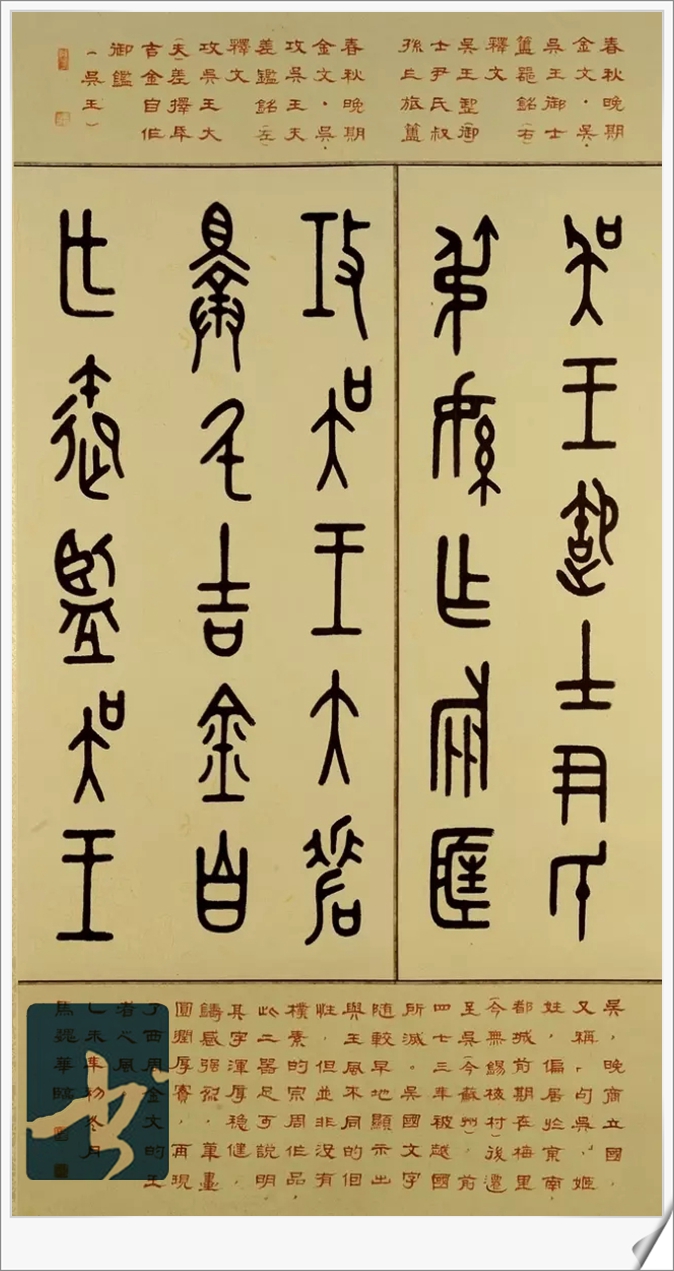 春秋晚期
金文·吳·
吳王御士
簠器銘(右)
釋文
吳王(御)
士尹氏叔
孫乍旅簠
春秋晚期
金文·吳·
攻吳王夫
差鑑銘(左)
釋文
攻吳王大
(夫)差擇氒
吉金自作
御鑑
(吳王)
吳王御士尹氏
叔孫乍旅匡
攻吳王大差
擇氒吉金自
乍御監吳王
吳,晚商立國,
又稱「句吳」姬
姓,偏居於東南,
都城前期在梅里
(今無錫梅村)後遷
至吳(今蘇州),前
四七三年被越國
所滅。吳國文字
隨較早地顯示出
與王風不同的個
性,但並非沒有
樸素的宗周作品,
此二器足可說明
其字渾厚穩健,
鑄感強烈,筆畫
圓潤厚實,再現
了西周金文的王
者之風
乙未年初冬月
馬魏華臨
书